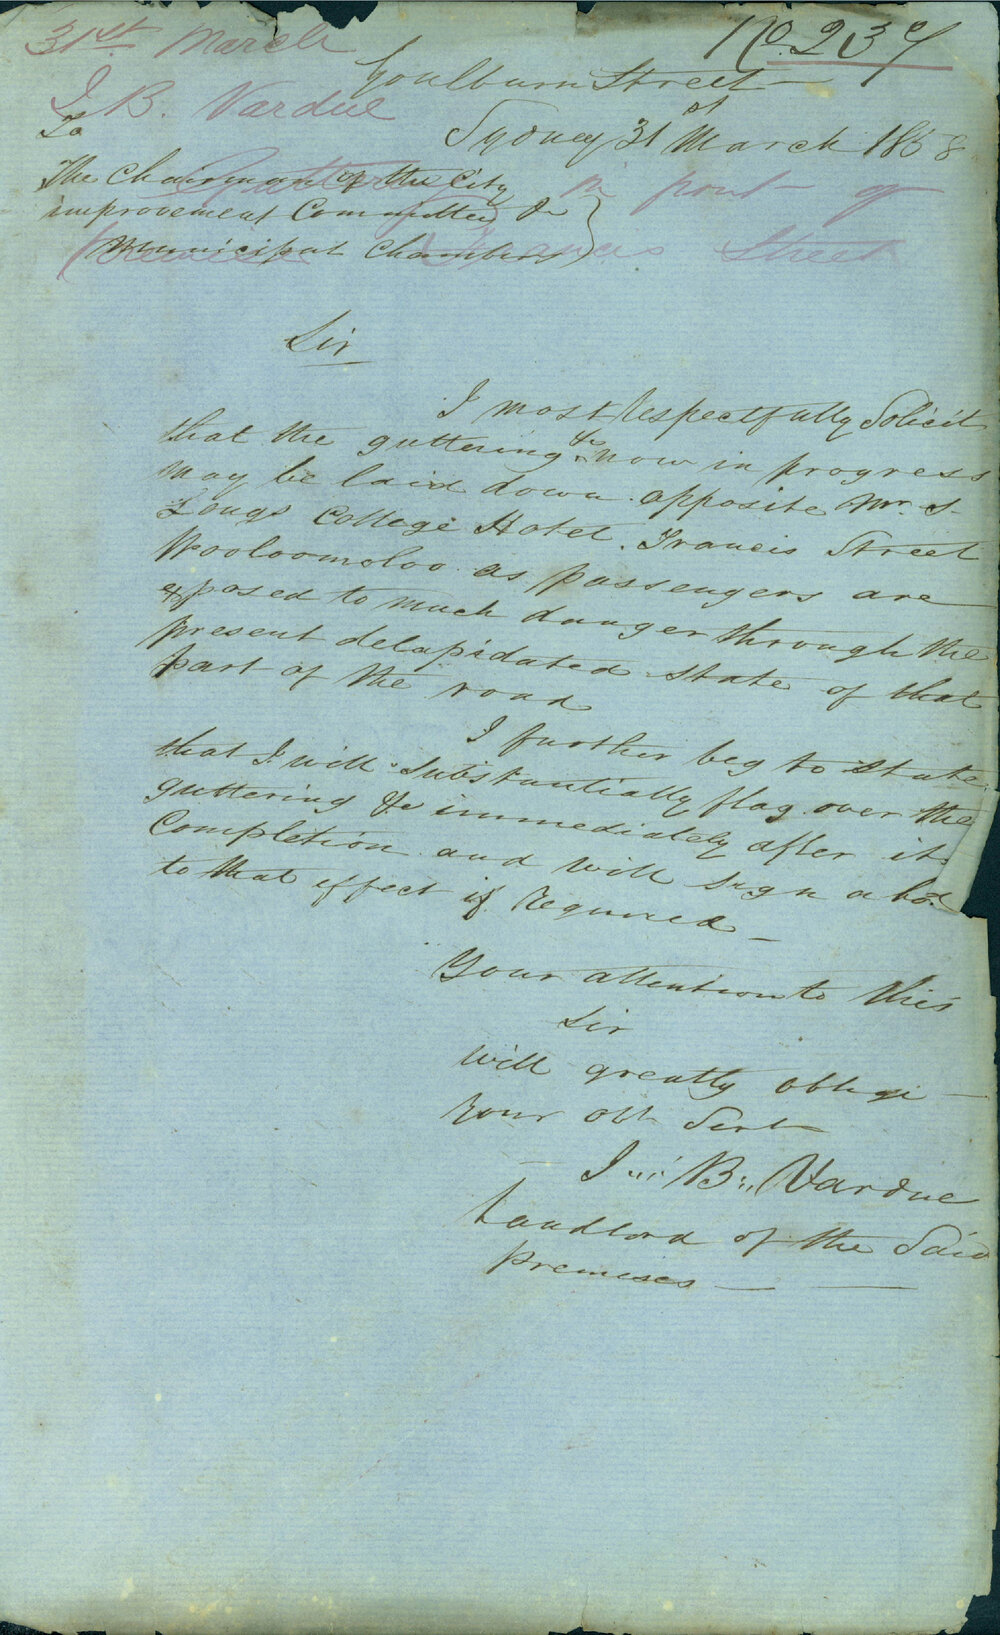 31st March
No 237
Goulburn Street
J B. Vardue
Sydney 31st March 1858
To
The Chairman of the City
improvement Committee &c
Municipal Chambers
Guttering in front of
premises Francis Street
Sir
I most respectfully Solicit
that the guttering &c now in progress
may be laid down opposite Mr. S.
Longs College Hotel. Francis Street
Wooloomoloo as passengers are
exposed to much danger through the
present delapidated state of that
part of the road
I further beg to state
that I will substantially flag over the
guttering &c immediately after its
Completion and will sign a bod
to that effect if required
Your attention to this
Sir
will greatly oblige
Your obt Sert
J B Vardue
Landlord of the Said
Premises